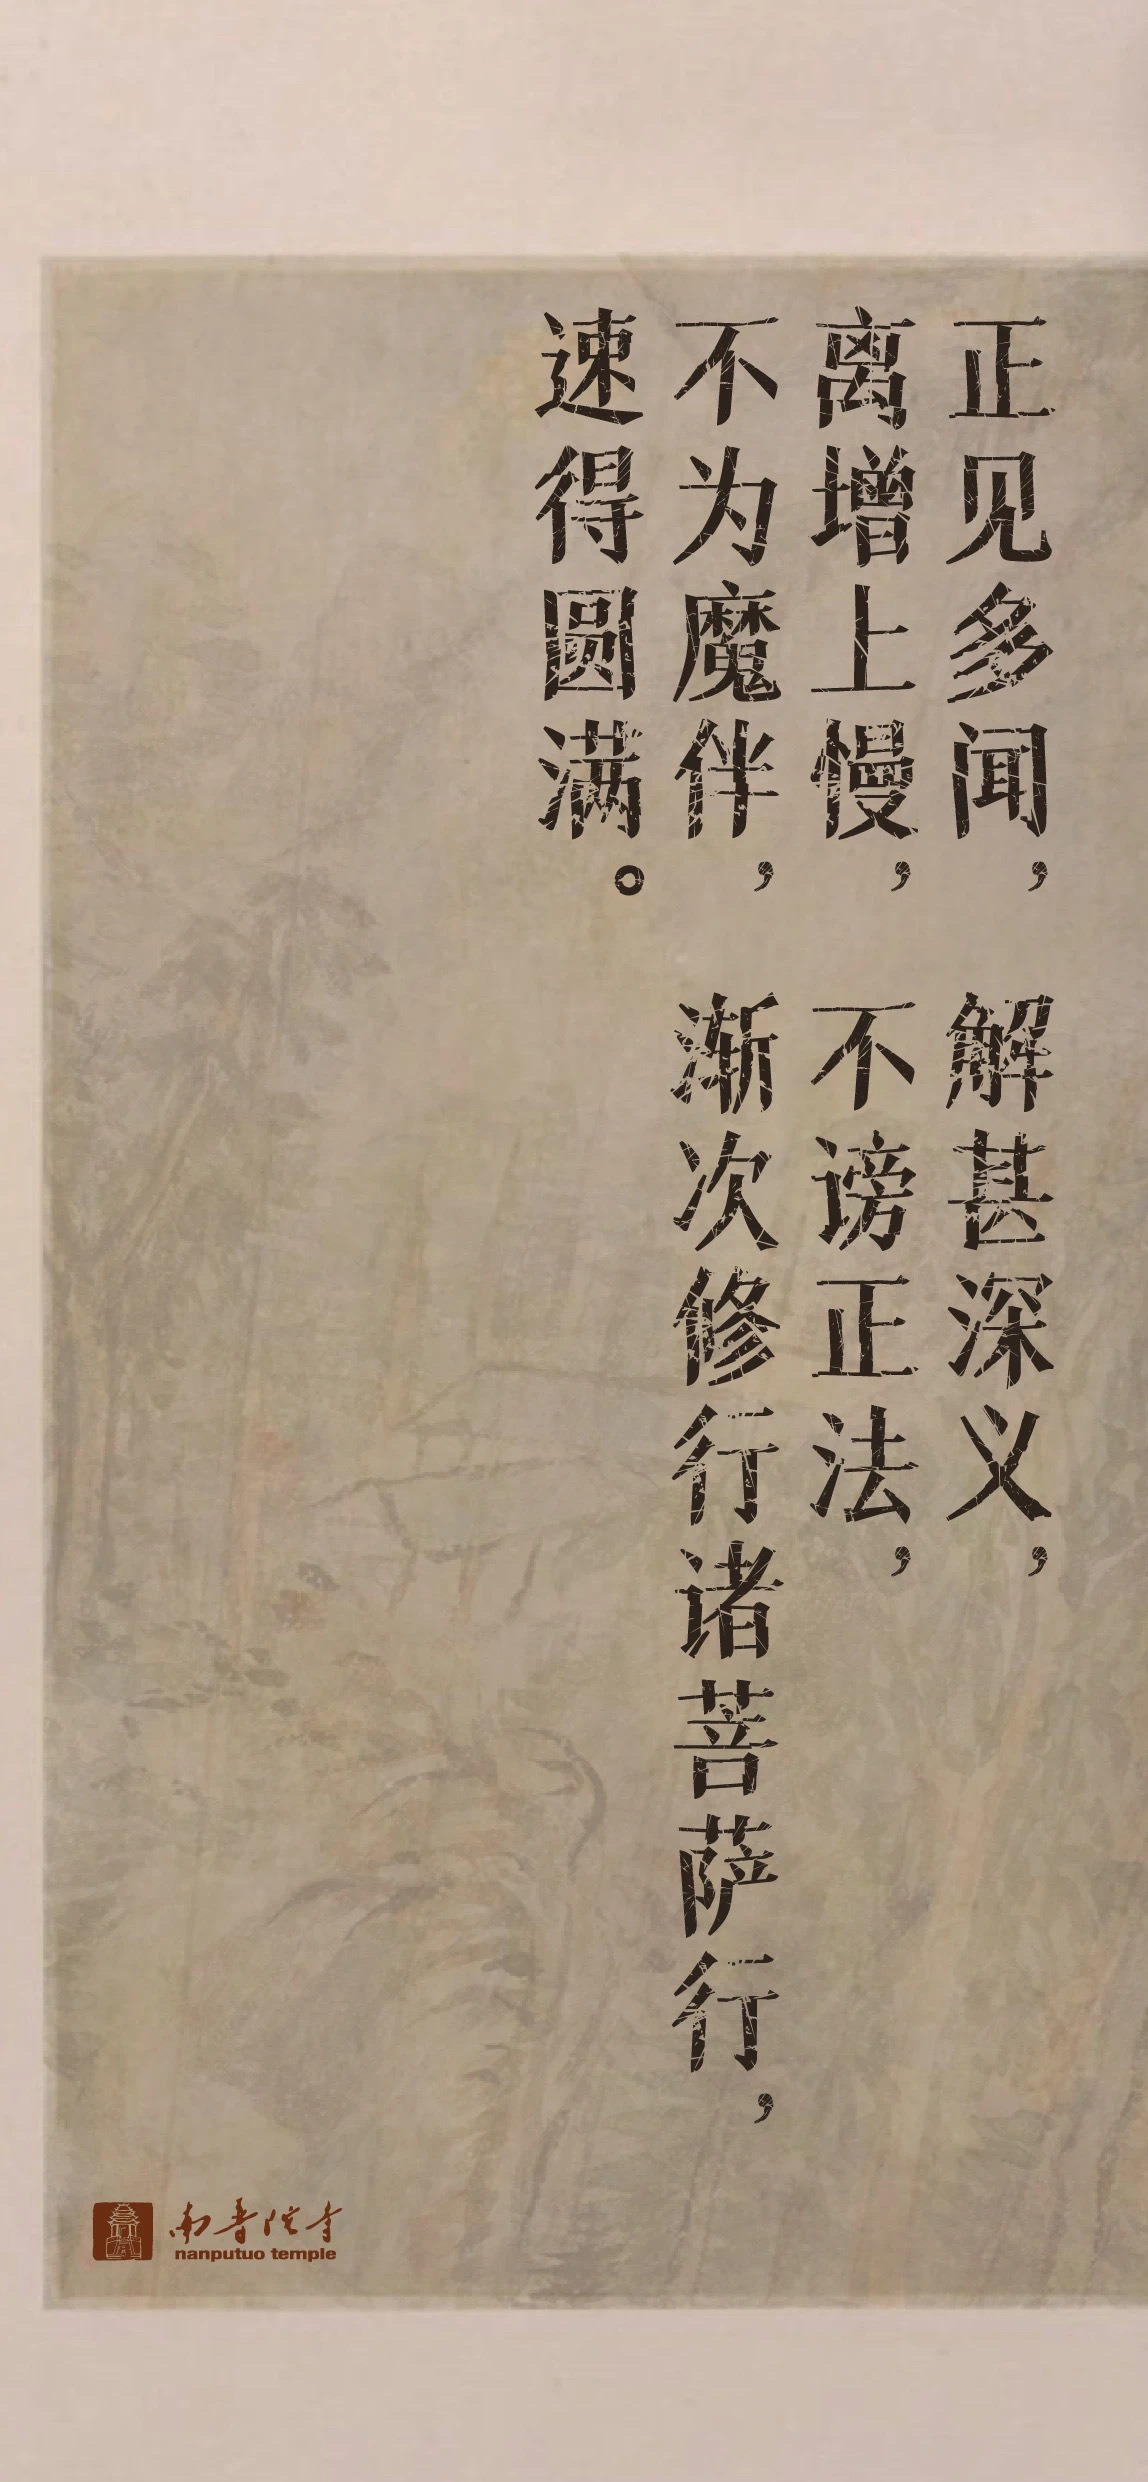 正见多闻，解甚深义，
离增上慢，不谤正法，
不为魔伴，渐次修行诸菩萨行，
速得圆满。
南普陀寺
nanputuo temple